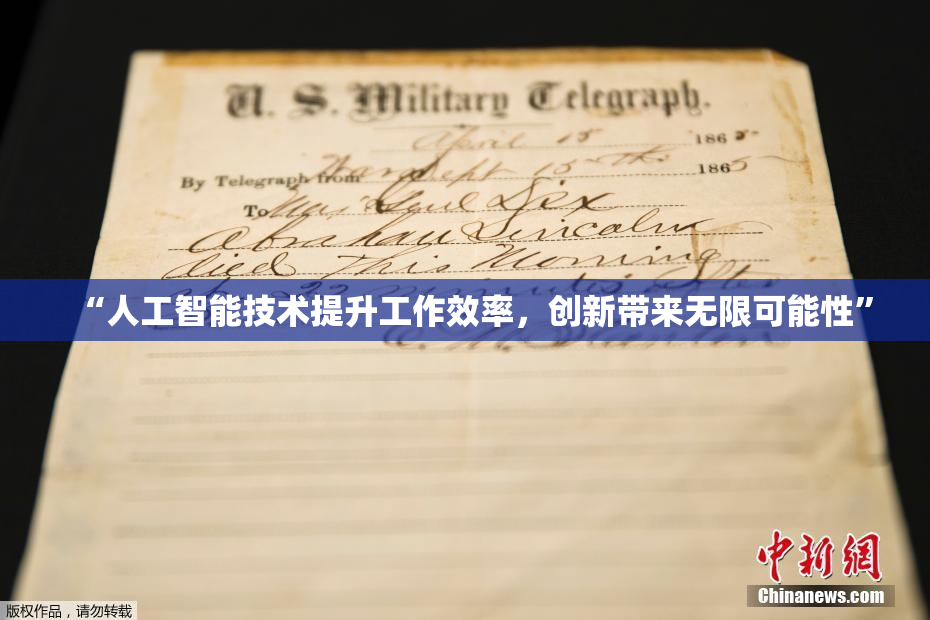 U. S. Military Telegraph.
April 15 1865
By Telegraph from War Dept 15th 1865
To Maj Genl Dix
Abraham Lincoln
died This Morning
22 minutes after
“人工智能技术提升工作效率，创新带来无限可能性”
E. M. Stanton
中新网
Chinanews.com
版权作品，请勿转载